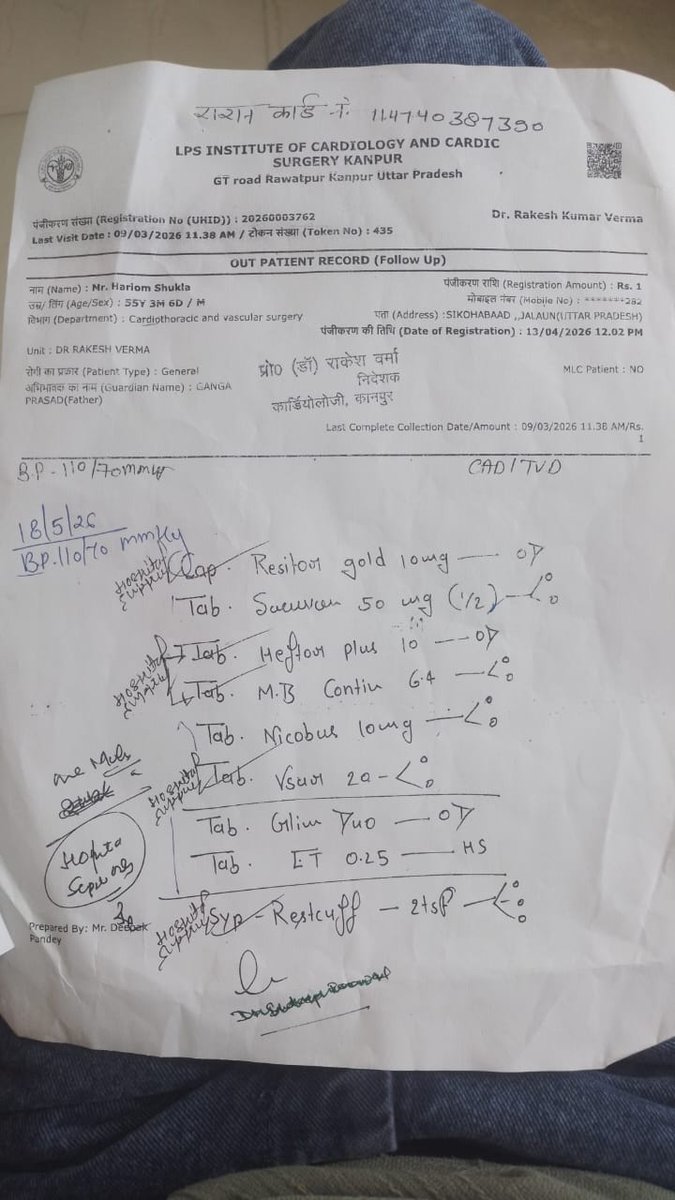 राशन कार्ड नं. 114740387390
LPS INSTITUTE OF CARDIOLOGY AND CARDIC
SURGERY KANPUR
GT road Rawatpur Kanpur Uttar Pradesh
पंजीकरण संख्या (Registration No (UHID)) : 20260003762
Dr. Rakesh Kumar Verma
Last Visit Date : 09/03/2026 11.38 AM / टोकन संख्या (Token No) : 435
OUT PATIENT RECORD (Follow Up)
नाम (Name) : Mr. Hariom Shukla
पंजीकरण राशि (Registration Amount) : Rs. 1
उम्र/ लिंग (Age/Sex) : 55Y 3M 6D / M
मोबाइल नंबर (Mobile No) : *******282
विभाग (Department) : Cardiothoracic and vascular surgery
पता (Address) :SIKOHABAAD ,,JALAUN(UTTAR PRADESH)
पंजीकरण की तिथि (Date of Registration) : 13/04/2026 12.02 PM
Unit : DR RAKESH VERMA
रोगी का प्रकार (Patient Type) : General
MLC Patient : NO
अभिभावक का नाम (Guardian Name) : GANGA
PRASAD(Father)
प्रो० (डॉ) राकेश वर्मा
निदेशक
कार्डियोलोजी, कानपुर
Last Complete Collection Date/Amount : 09/03/2026 11.38 AM/Rs.
1
B.P - 110/70mmHg
CAD/TVD
18/5/26
B.P. 110/70 mmHg
Hospital supply Cap. gold 10mg — OD
Tab. 50 mg (1/2)
Hospital supply Tab. plus 10 — OD
Tab. M.B Contin 6.4
Tab. 10mg
Hospital supply Tab. 20
one
Tab. Glim Duo — OD
Tab. ET 0.25 — HS
Hospital
Hospital supply Syp - Restcuff — 2tsf
Prepared By: Mr. Deepak
Pandey